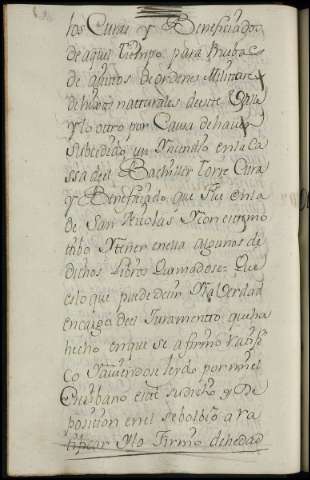 los Curas y Benefiziados
de aquel tiempo para Pruebas
de auitos de ordenes Militares
de hixos nacturales de este
Y lo otro por Causa de hauer
Subcedido un Yncendio en la Ca
ssa del Bachiller Torre Cura
y Benefiziado que fue en la
de San Nicolas Por cuio mo
tibo tener en ella algunos de
dichos Libros quemadose Que
es lo que puede decir Y la Verdad
en cargo del Juramento que ha
hecho en que se a firmo ratifi
co Y auiendole leydo por mi el
Escribano este su dicho y De
posicion en el se bolbio a ra
tificar Y lo firmo de hedad